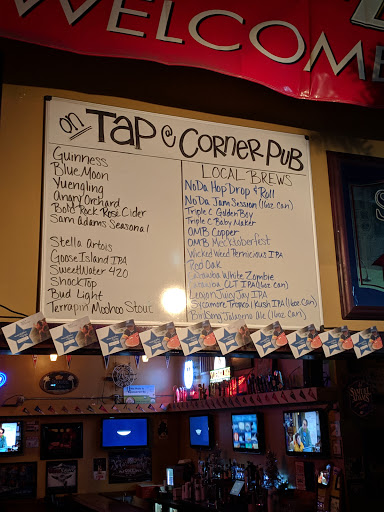 WELCOME
on TAP @ CORNER PUB
Guinness
Blue Moon
Yuengling
Angry Orchard
Bold Rock Rosé Cider
Sam Adams Seasonal
Stella Artois
Goose Island IPA
SweetWater 420
ShockTop
Bud Light
Terrapin Moohoo Stout
LOCAL BREWS
NoDa Hop Drop & Roll
NoDa Jam Session (16oz Can)
Triple C Golden Boy
Triple C Baby Maker
OMB Copper
OMB Mecktoberfest
Wicked Weed Pernicious IPA
Red Oak
Catawba White Zombie
Catawba CLT IPA (16oz Can)
Legion Juicy Jay IPA
Sycamore Tropical Kush IPA (16oz Can)
Birdsong Jalapeno Ale (16oz Can)